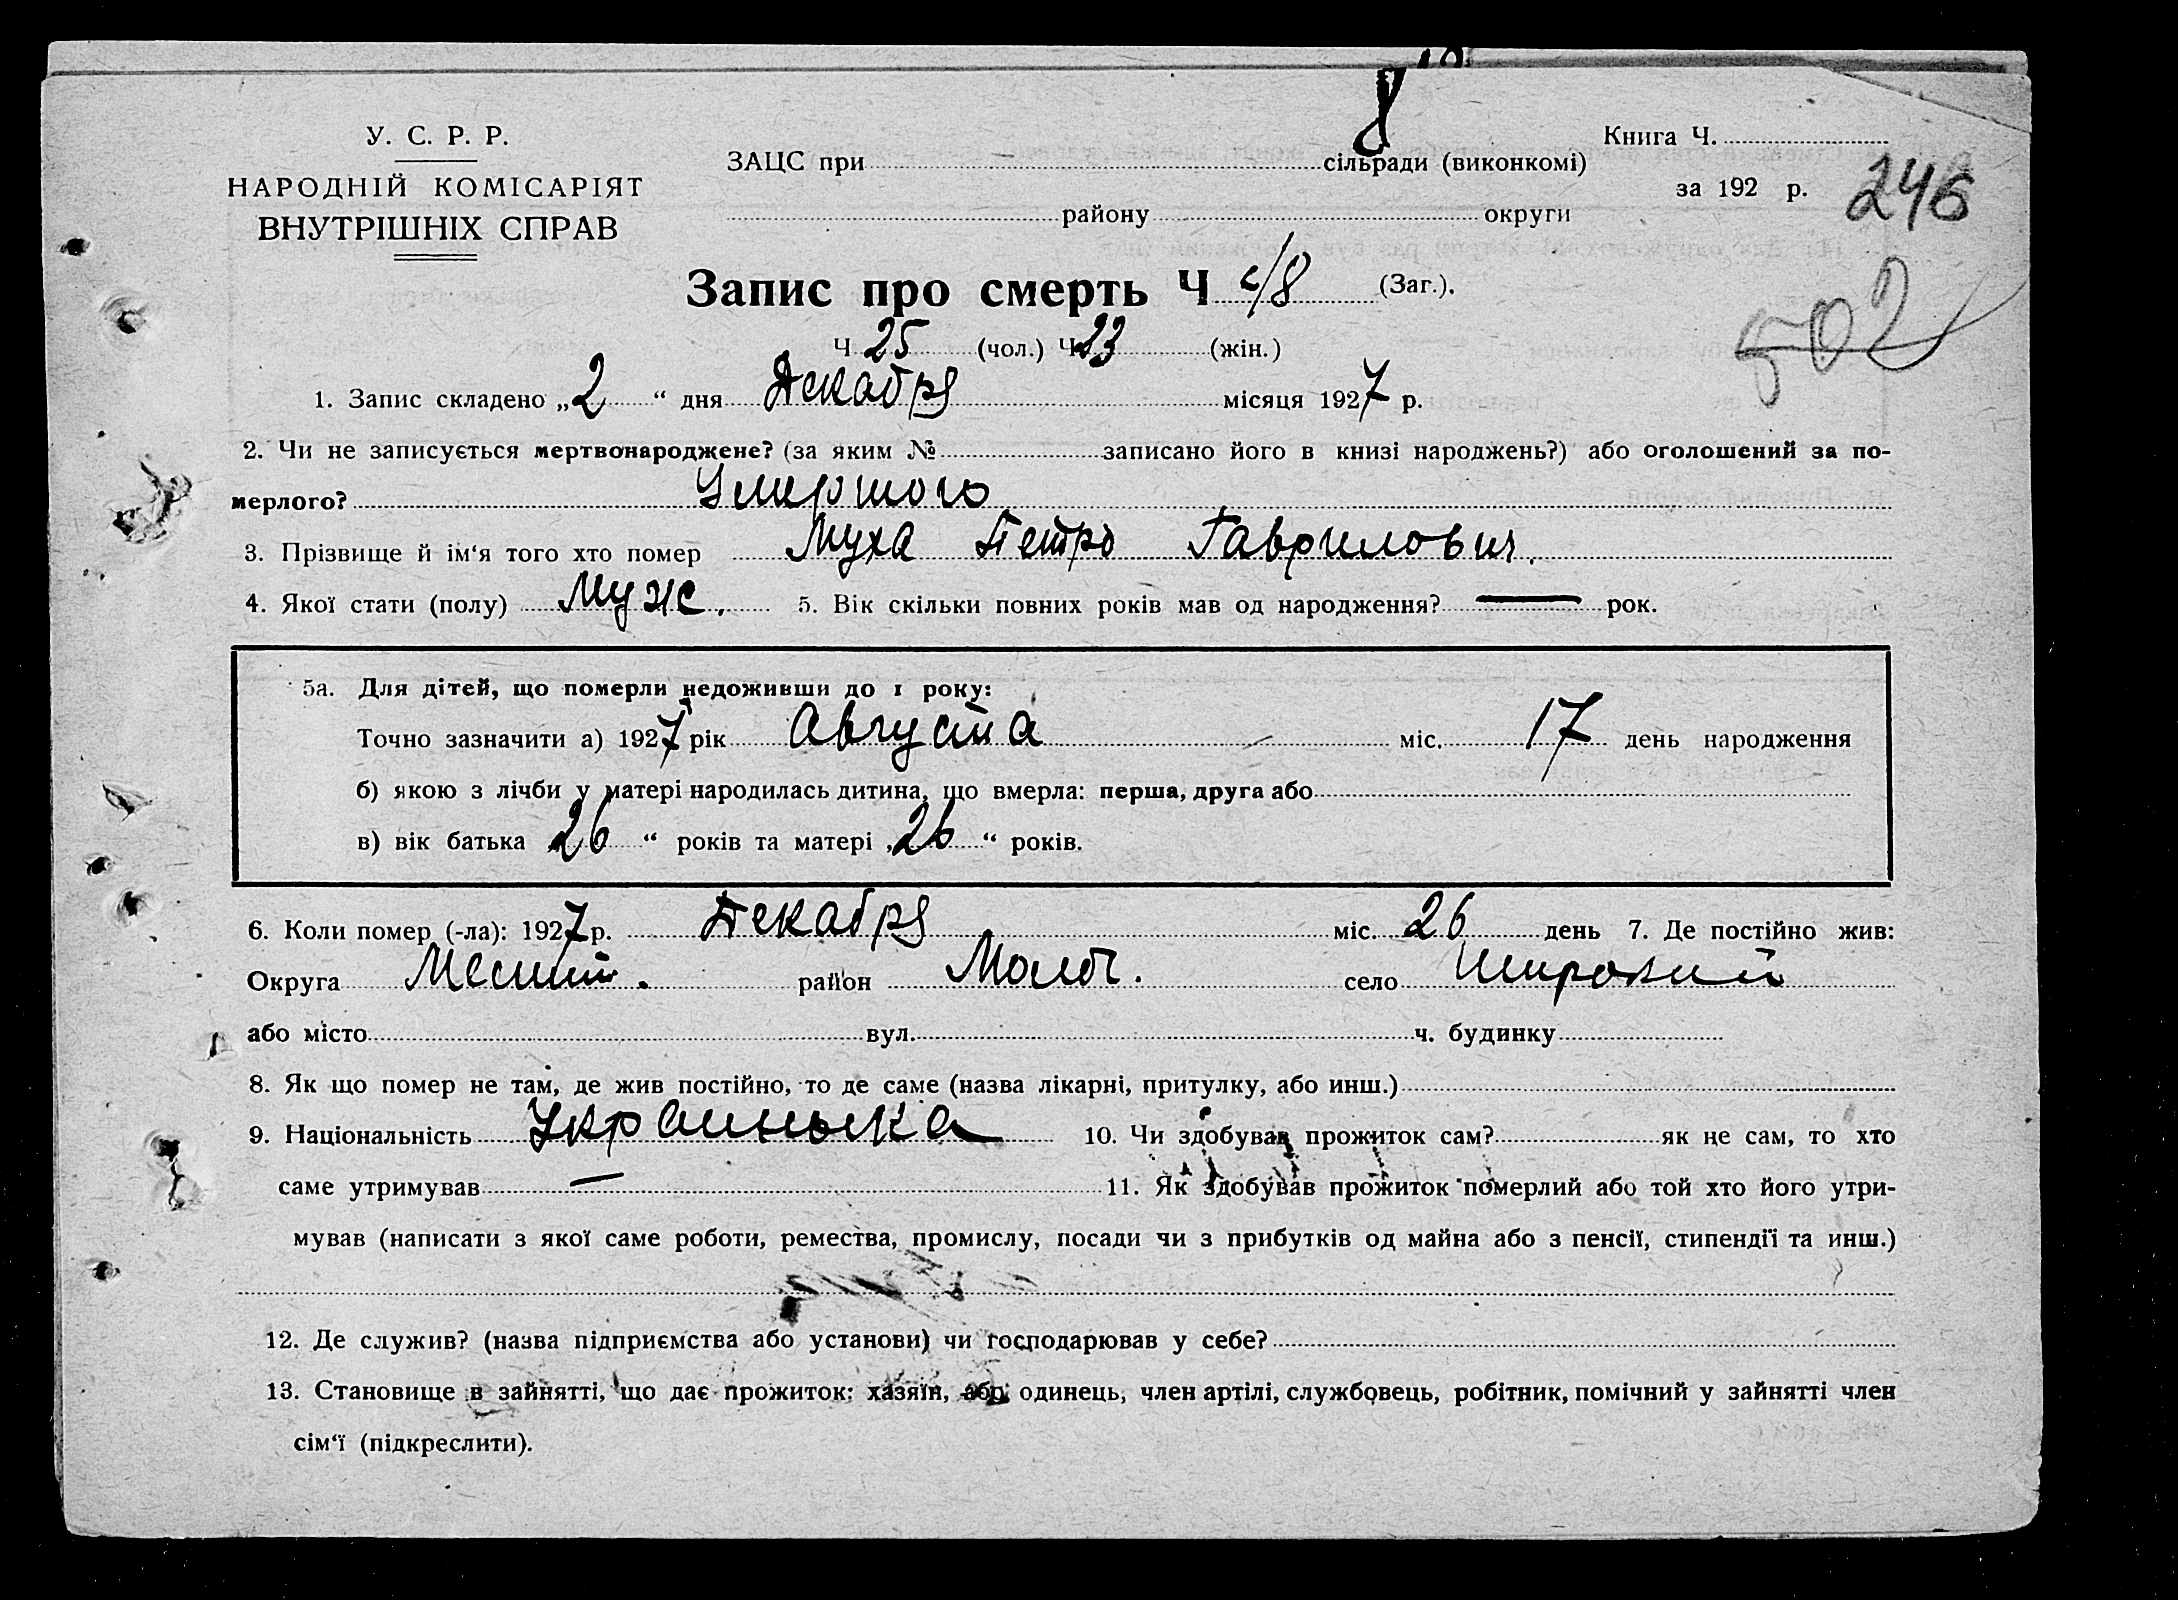 8
У. С. Р. Р.
НАРОДНІЙ КОМІСАРІЯТ
ВНУТРІШНІХ СПРАВ
ЗАЦС при сільради (виконкомі)
району округи
Книга Ч.
за 192 р.
246
502
Запис про смерть Ч 48 (Заг.).
Ч 25 (чол.) Ч 23 (жін.)
1. Запис складено „2“ дня Декабря місяця 1927 р.
2. Чи не записується мертвонароджене? (за яким № записано його в книзі народжень?) або оголошений за по-
мерлого? Умершого
3. Прізвище й ім‘я того хто помер Муха Петро Гаврилович.
4. Якої стати (полу) Муж. 5. Вік скільки повних років мав од народження? — рок.
5а. Для дітей, що померли недоживши до 1 року:
Точно зазначити а) 1927 рік Августа міс. 17 день народження
б) якою з лічби у матері народилась дитина, що вмерла: перша, друга або
в) вік батька „26“ років та матері „26“ років.
6. Коли помер (-ла): 1927 р. Декабря міс. 26 день 7. Де постійно жив:
Округа район село Широкий
або місто вул. ч. будинку
8. Як що помер не там, де жив постійно, то де саме (назва лікарні, притулку, або инш.)
9. Національність 10. Чи здобував прожиток сам? як не сам, то хто
саме утримував — 11. Як здобував прожиток померлий або той хто його утри-
мував (написати з якої саме роботи, ремества, промислу, посади чи з прибутків од майна або з пенсії, стипендії та инш.)
12. Де служив? (назва підприємства або установи) чи господарював у себе?
13. Становище в зайнятті, що дає прожиток: хазяїн, або одинець, член артілі, службовець, робітник, помічний у зайнятті член
сім‘ї (підкреслити).